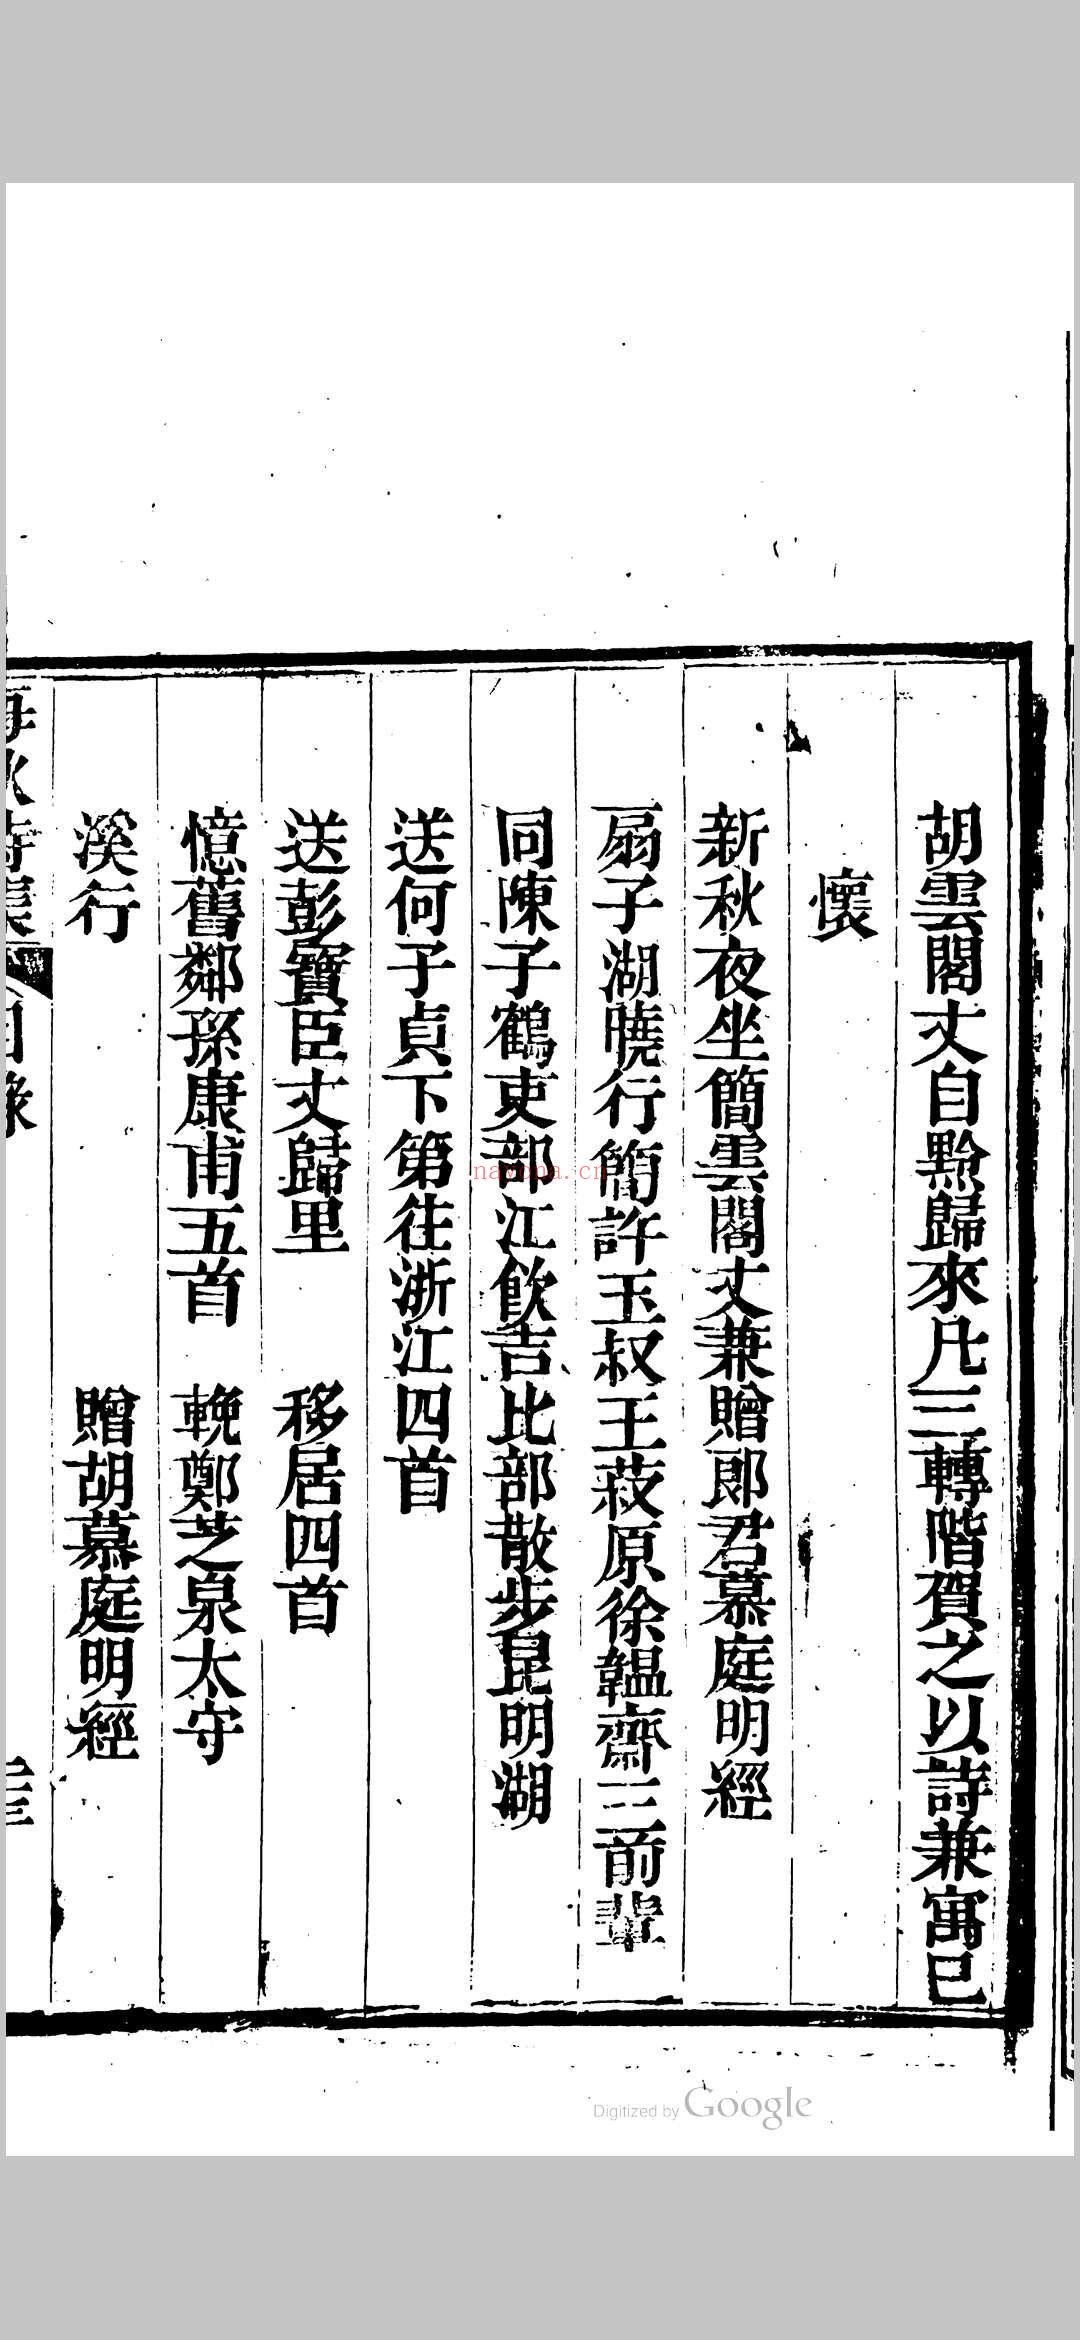 胡雲閣丈自黔歸來凡三轉階賀之以詩兼寓已
懷
新秋夜坐簡雲閣丈兼贈郎君慕庭明經
扇子湖曉行簡許玉叔王菽原徐韞齋三前輩
同陳子鶴吏部江飲吉比部散步昆明湖
送何子貞下第往浙江四首
送彭寶臣丈歸里　移居四首
憶舊鄰孫康甫五首　輓鄭芝泉太守
溪行　贈胡慕庭明經
海秋詩集　目錄
nayona.cn
Digitized by Google